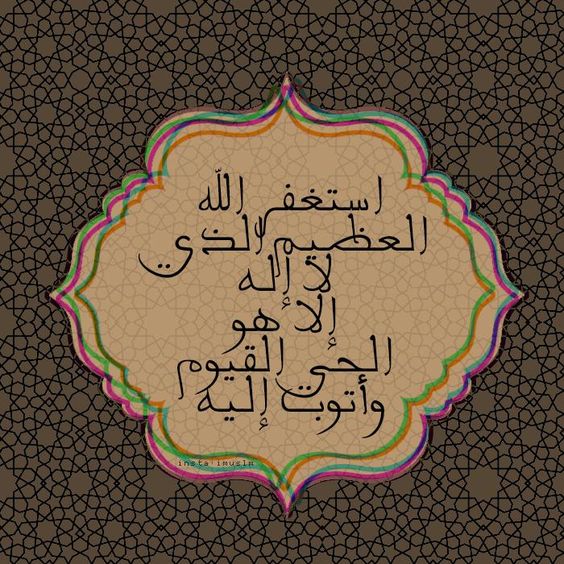 استغفر الله
العظيم الذي
لا إله
إلا هو
الحي القيوم
وأتوب إليه
insta:imuslm